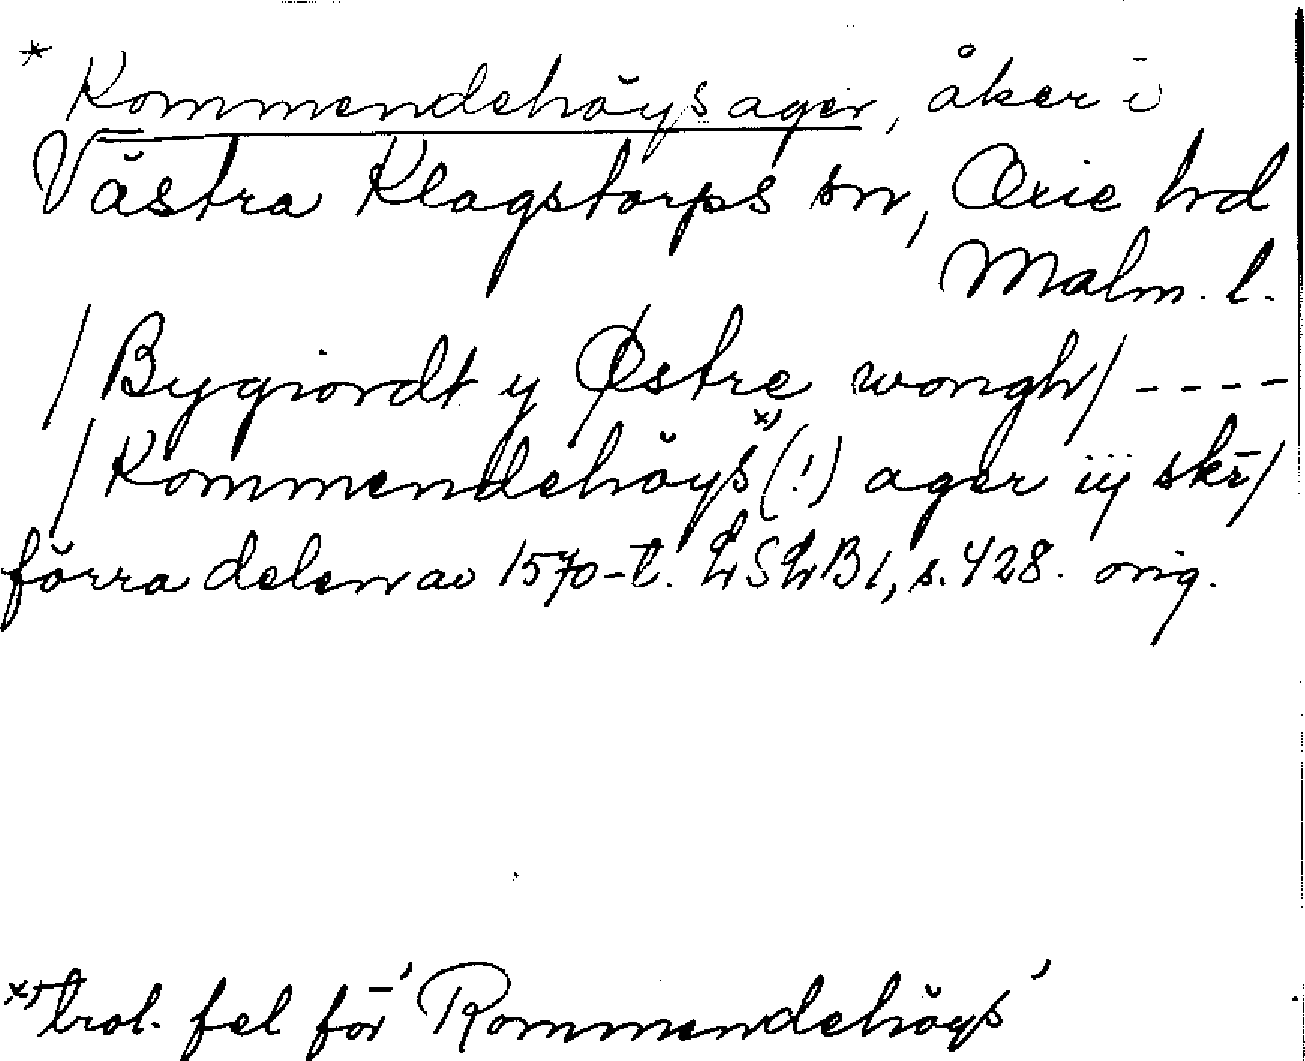 * Kommendehöysager, åker i
Västra Klagstorps sn, Oxie hd
Malm. l.
/Bygiordt y Østre wongh/ ----
/Kommendehöys x) (!) ager iij skr/
förra delen av 1570-t. LSLB 1, s. 428. orig.
x) trol. fel för 'Rommendehöys'